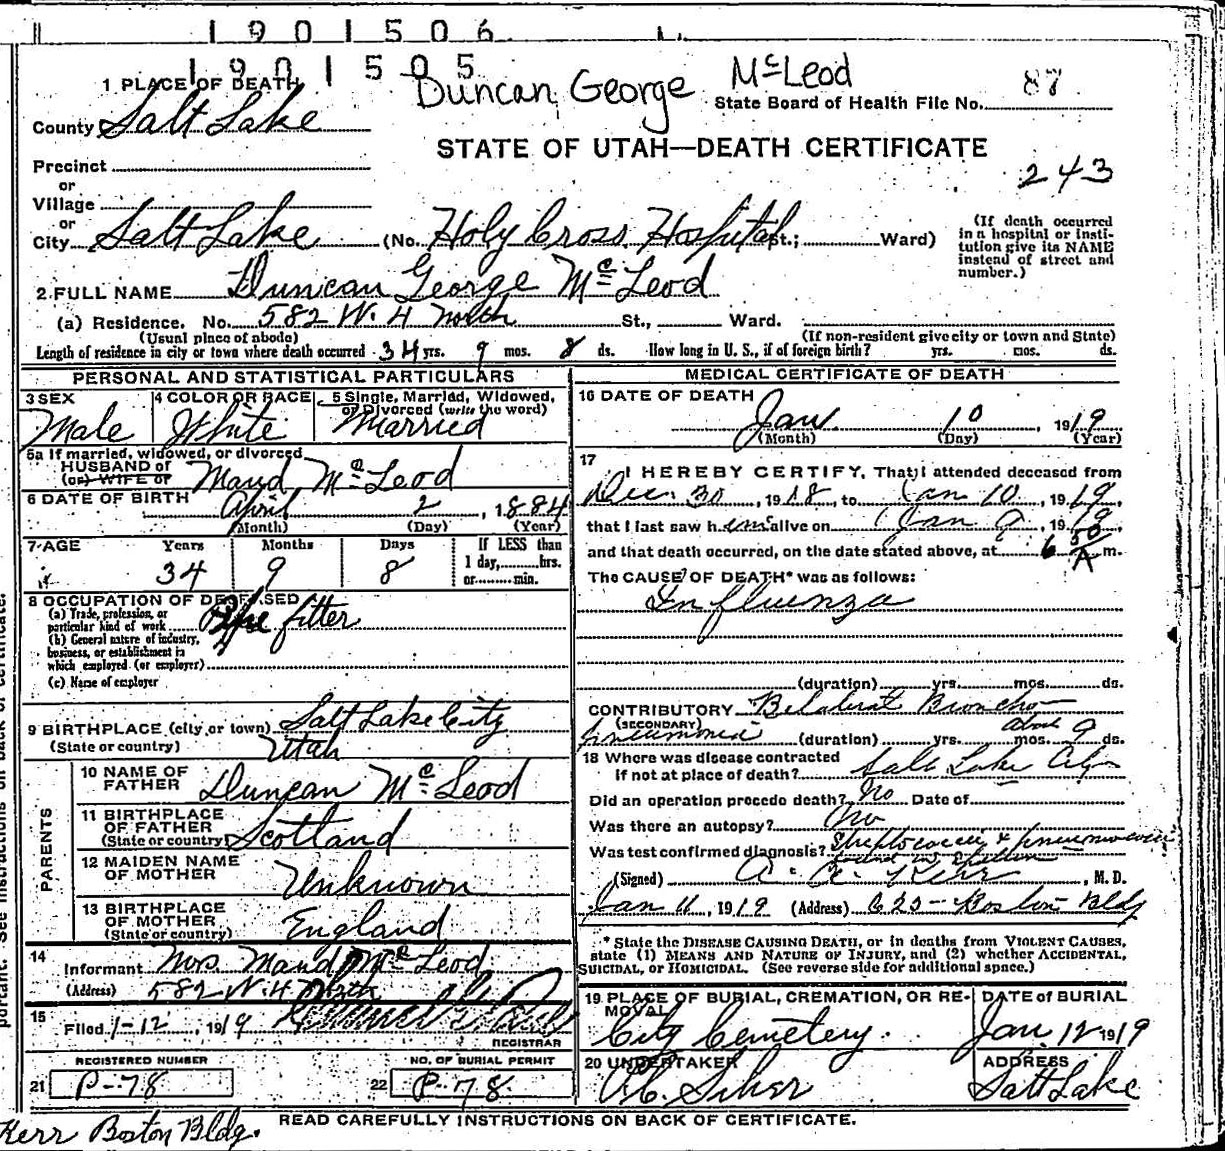 1901506
1901505
Duncan George McLeod
1 PLACE OF DEATH
State Board of Health File No. 87
County Salt Lake
STATE OF UTAH—DEATH CERTIFICATE
Precinct
243
or
Village
or
City Salt Lake (No. Holy Cross Hospital St.; Ward)
(If death occurred in a hospital or insti-
tution give its NAME
instead of street and
number.)
2 FULL NAME Duncan George McLeod
(a) Residence. No. 582 W. 4 North St., Ward.
(Usual place of abode) (If non-resident give city or town and State)
Length of residence in city or town where death occurred 34 yrs. 9 mos. 8 ds. How long in U. S., if of foreign birth? yrs. mos. ds.
PERSONAL AND STATISTICAL PARTICULARS
3 SEX
Male
4 COLOR OR RACE
White
5 Single, Married, Widowed,
or Divorced (write the word)
Married
5a If married, widowed, or divorced
HUSBAND of
(or) WIFE of Maud McLeod
6 DATE OF BIRTH April 2, 1884
(Month) (Day) (Year)
7 AGE Years Months Days
34 9 8
If LESS than
1 day, hrs.
or min.
8 OCCUPATION OF DECEASED
(a) Trade, profession, or
particular kind of work Pipe fitter
(b) General nature of industry,
business, or establishment in
which employed (or employer)
(c) Name of employer
9 BIRTHPLACE (city or town) Salt Lake City
(State or country) Utah
PARENTS
10 NAME OF
FATHER Duncan McLeod
11 BIRTHPLACE
OF FATHER
(State or country) Scotland
12 MAIDEN NAME
OF MOTHER Unknown
13 BIRTHPLACE
OF MOTHER
(State or country) England
14
Informant Mrs. Maud McLeod
(Address) 582 W. 4 North
15
Filed 1-12, 1919
REGISTRAR
REGISTERED NUMBER
21 P-78
NO. OF BURIAL PERMIT
22 P-78
MEDICAL CERTIFICATE OF DEATH
16 DATE OF DEATH
Jan. 10, 1919
(Month) (Day) (Year)
17
I HEREBY CERTIFY, That I attended deceased from
Dec. 30, 1918, to Jan 10, 1919,
that I last saw him alive on Jan 9, 1919,
and that death occurred, on the date stated above, at 6 50 A m.
The CAUSE OF DEATH* was as follows:
Influenza
(duration) yrs. mos. ds.
CONTRIBUTORY Bilateral Broncho-
(SECONDARY)
pneumonia (duration) yrs. mos. about 9 ds.
18 Where was disease contracted
if not at place of death? Salt Lake City
Did an operation precede death? No Date of
Was there an autopsy? No
Was test confirmed diagnosis? Streptococci & pneumococci
found in Sputum
(Signed) A. Kerr, M. D.
Jan 11, 1919 (Address) 625- Boston Bldg
* State the DISEASE CAUSING DEATH, or in deaths from VIOLENT CAUSES,
state (1) MEANS AND NATURE OF INJURY, and (2) whether ACCIDENTAL,
SUICIDAL, or HOMICIDAL. (See reverse side for additional space.)
19 PLACE OF BURIAL, CREMATION, OR RE-
MOVAL
City Cemetery.
DATE of BURIAL
Jan. 12 1919
20 UNDERTAKER
ADDRESS
Salt Lake
READ CAREFULLY INSTRUCTIONS ON BACK OF CERTIFICATE.
Kerr Boston Bldg.